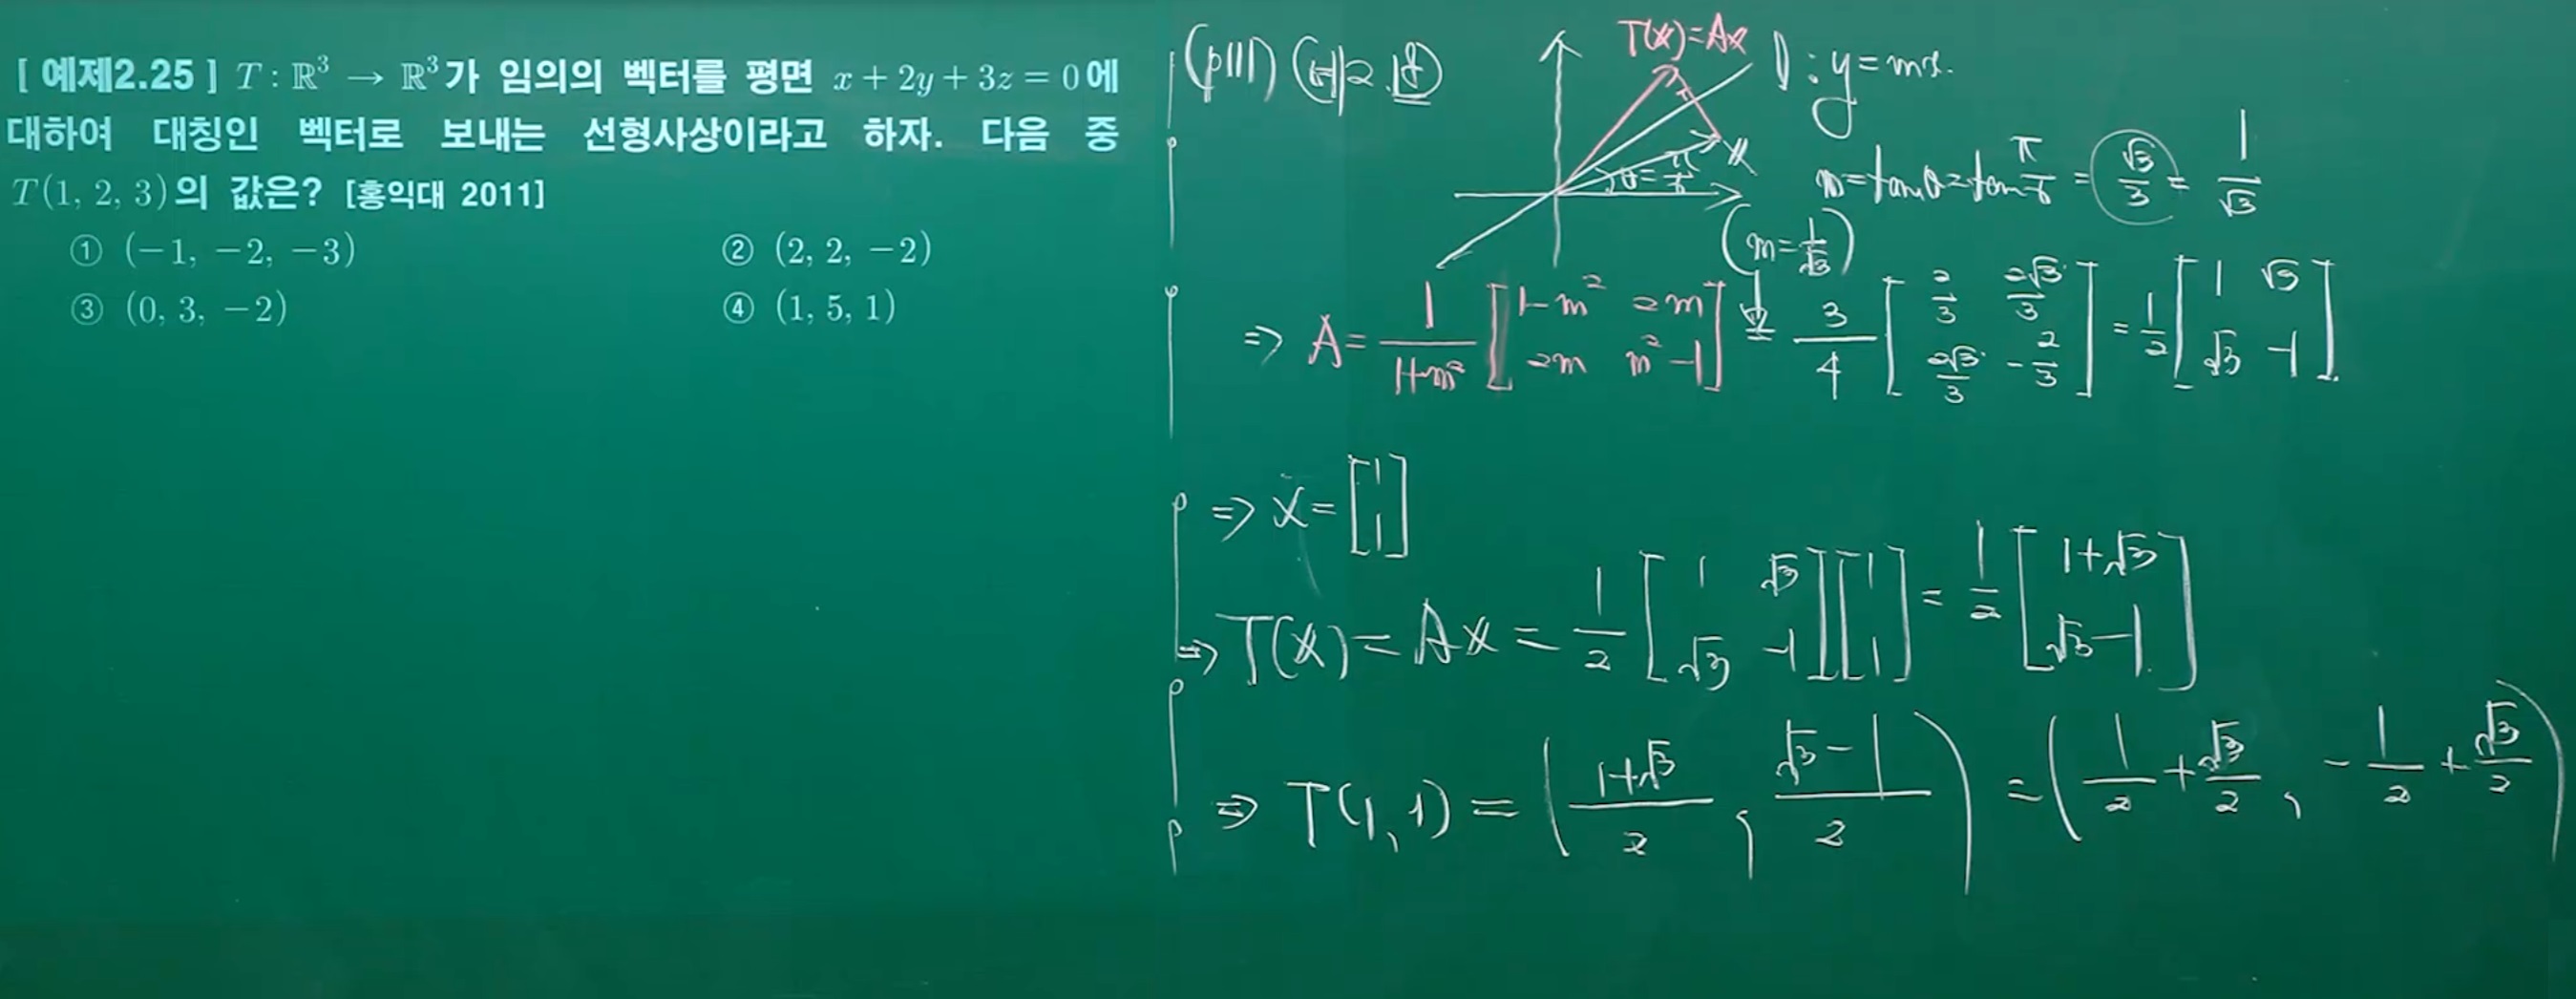 [ 예제2.25 ] T : ℝ³ → ℝ³가 임의의 벡터를 평면 x + 2y + 3z = 0에
대하여 대칭인 벡터로 보내는 선형사상이라고 하자. 다음 중
T(1, 2, 3)의 값은? [홍익대 2011]
① (−1, −2, −3) ② (2, 2, −2)
③ (0, 3, −2) ④ (1, 5, 1)
(p111)
T(x)=Ax
l : y=mx.
θ=π/6
x
m=tanθ=tan π/6 = √3/3 = 1/√3
(m=1/√3)
⇒ A= 1/(1+m²) [1-m² 2m; 2m m²-1] = 3/4 [2/3 2√3/3; 2√3/3 -2/3] = 1/2 [1 √3; √3 -1]
⇒ x= [1; 1]
⇒ T(x) = Ax = 1/2 [1 √3; √3 -1] [1; 1] = 1/2 [1+√3; √3-1]
⇒ T(1,1) = ( (1+√3)/2 , (√3-1)/2 ) = ( 1/2 + √3/2 , -1/2 + √3/2 )